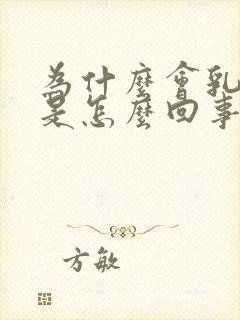 為什麼會乳
是怎麼回事
方敏